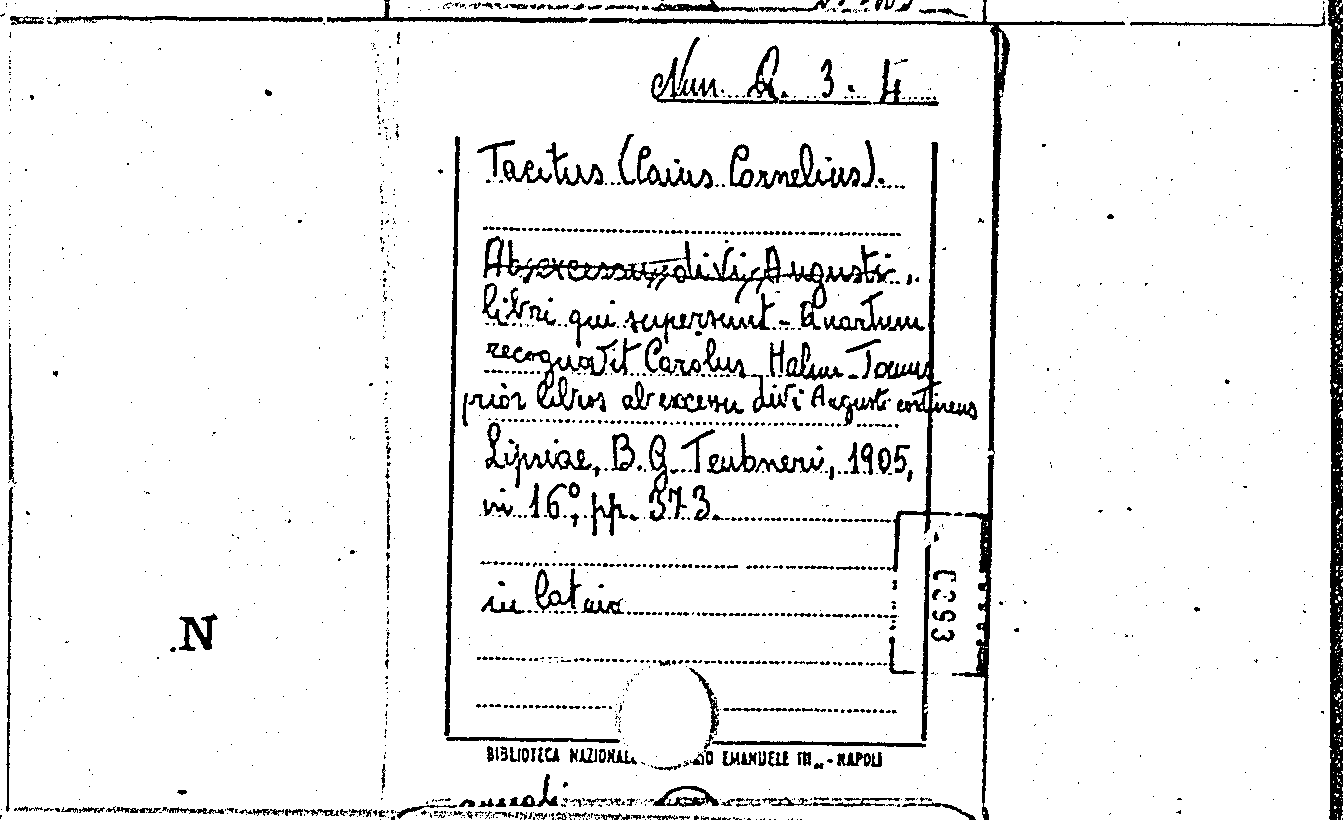 Nun. Q. 3. 4
Tacitus (Caius Cornelius).
Ab excessu divi Augusti.
libri qui supersunt - Quartum
recognovit Carolus Halm - Tomus
prior libros ab excessu divi Augusti continens
Lipsiae, B. G. Teubneri, 1905,
in 16°, pp. 373.
in latino
N
BIBLIOTECA NAZIONALE EMANUELE III„ - NAPOLI